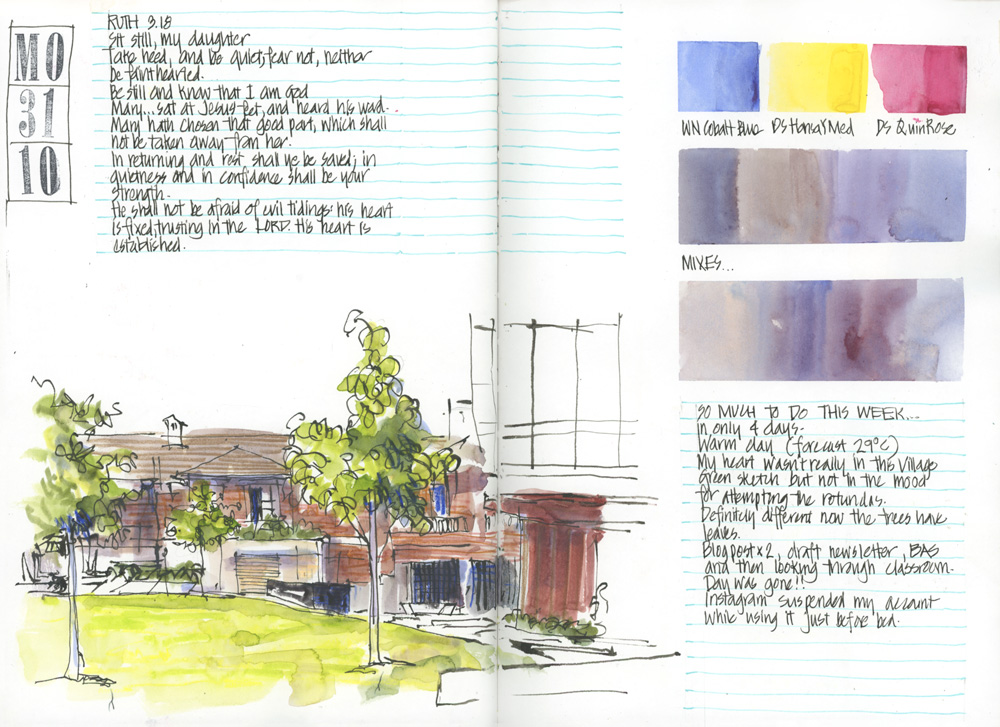 MO
31
10
RUTH 3.18
Sit still, my daughter
Take heed, and be quiet; fear not, neither
be fainthearted.
Be still and know that I am God
Mary... sat at Jesus feet, and heard his word...
Mary hath chosen that good part, which shall
not be taken away from her.
In returning and rest shall ye be saved; in
quietness and in confidence shall be your
strength.
He shall not be afraid of evil tidings: his heart
is fixed, trusting in the LORD. His heart is
established.
WN Cobalt Blue DS Hansa Y Med DS Quin Rose
MIXES...
SO MUCH TO DO THIS WEEK...
in only 4 days.
Warm day (forecast 29°C)
My heart wasn't really in this village
green sketch but not in the mood
for attempting the rotundas.
Definitely different now the trees have
leaves.
Blog post x 2, draft newsletter, BAS
and then looking through classroom.
Day was gone!!
Instagram suspended my account
while using it just before bed.